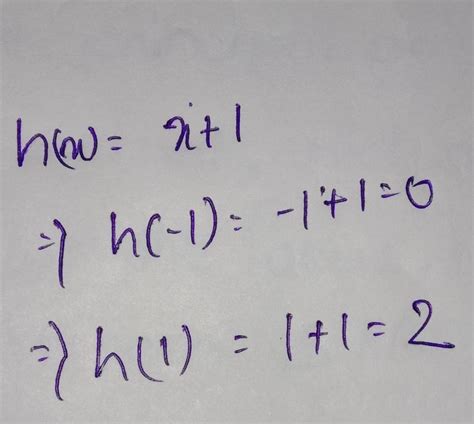 h(x) = x+1
⇒ h(-1) = -1+1=0
⇒ h(1) = 1+1=2